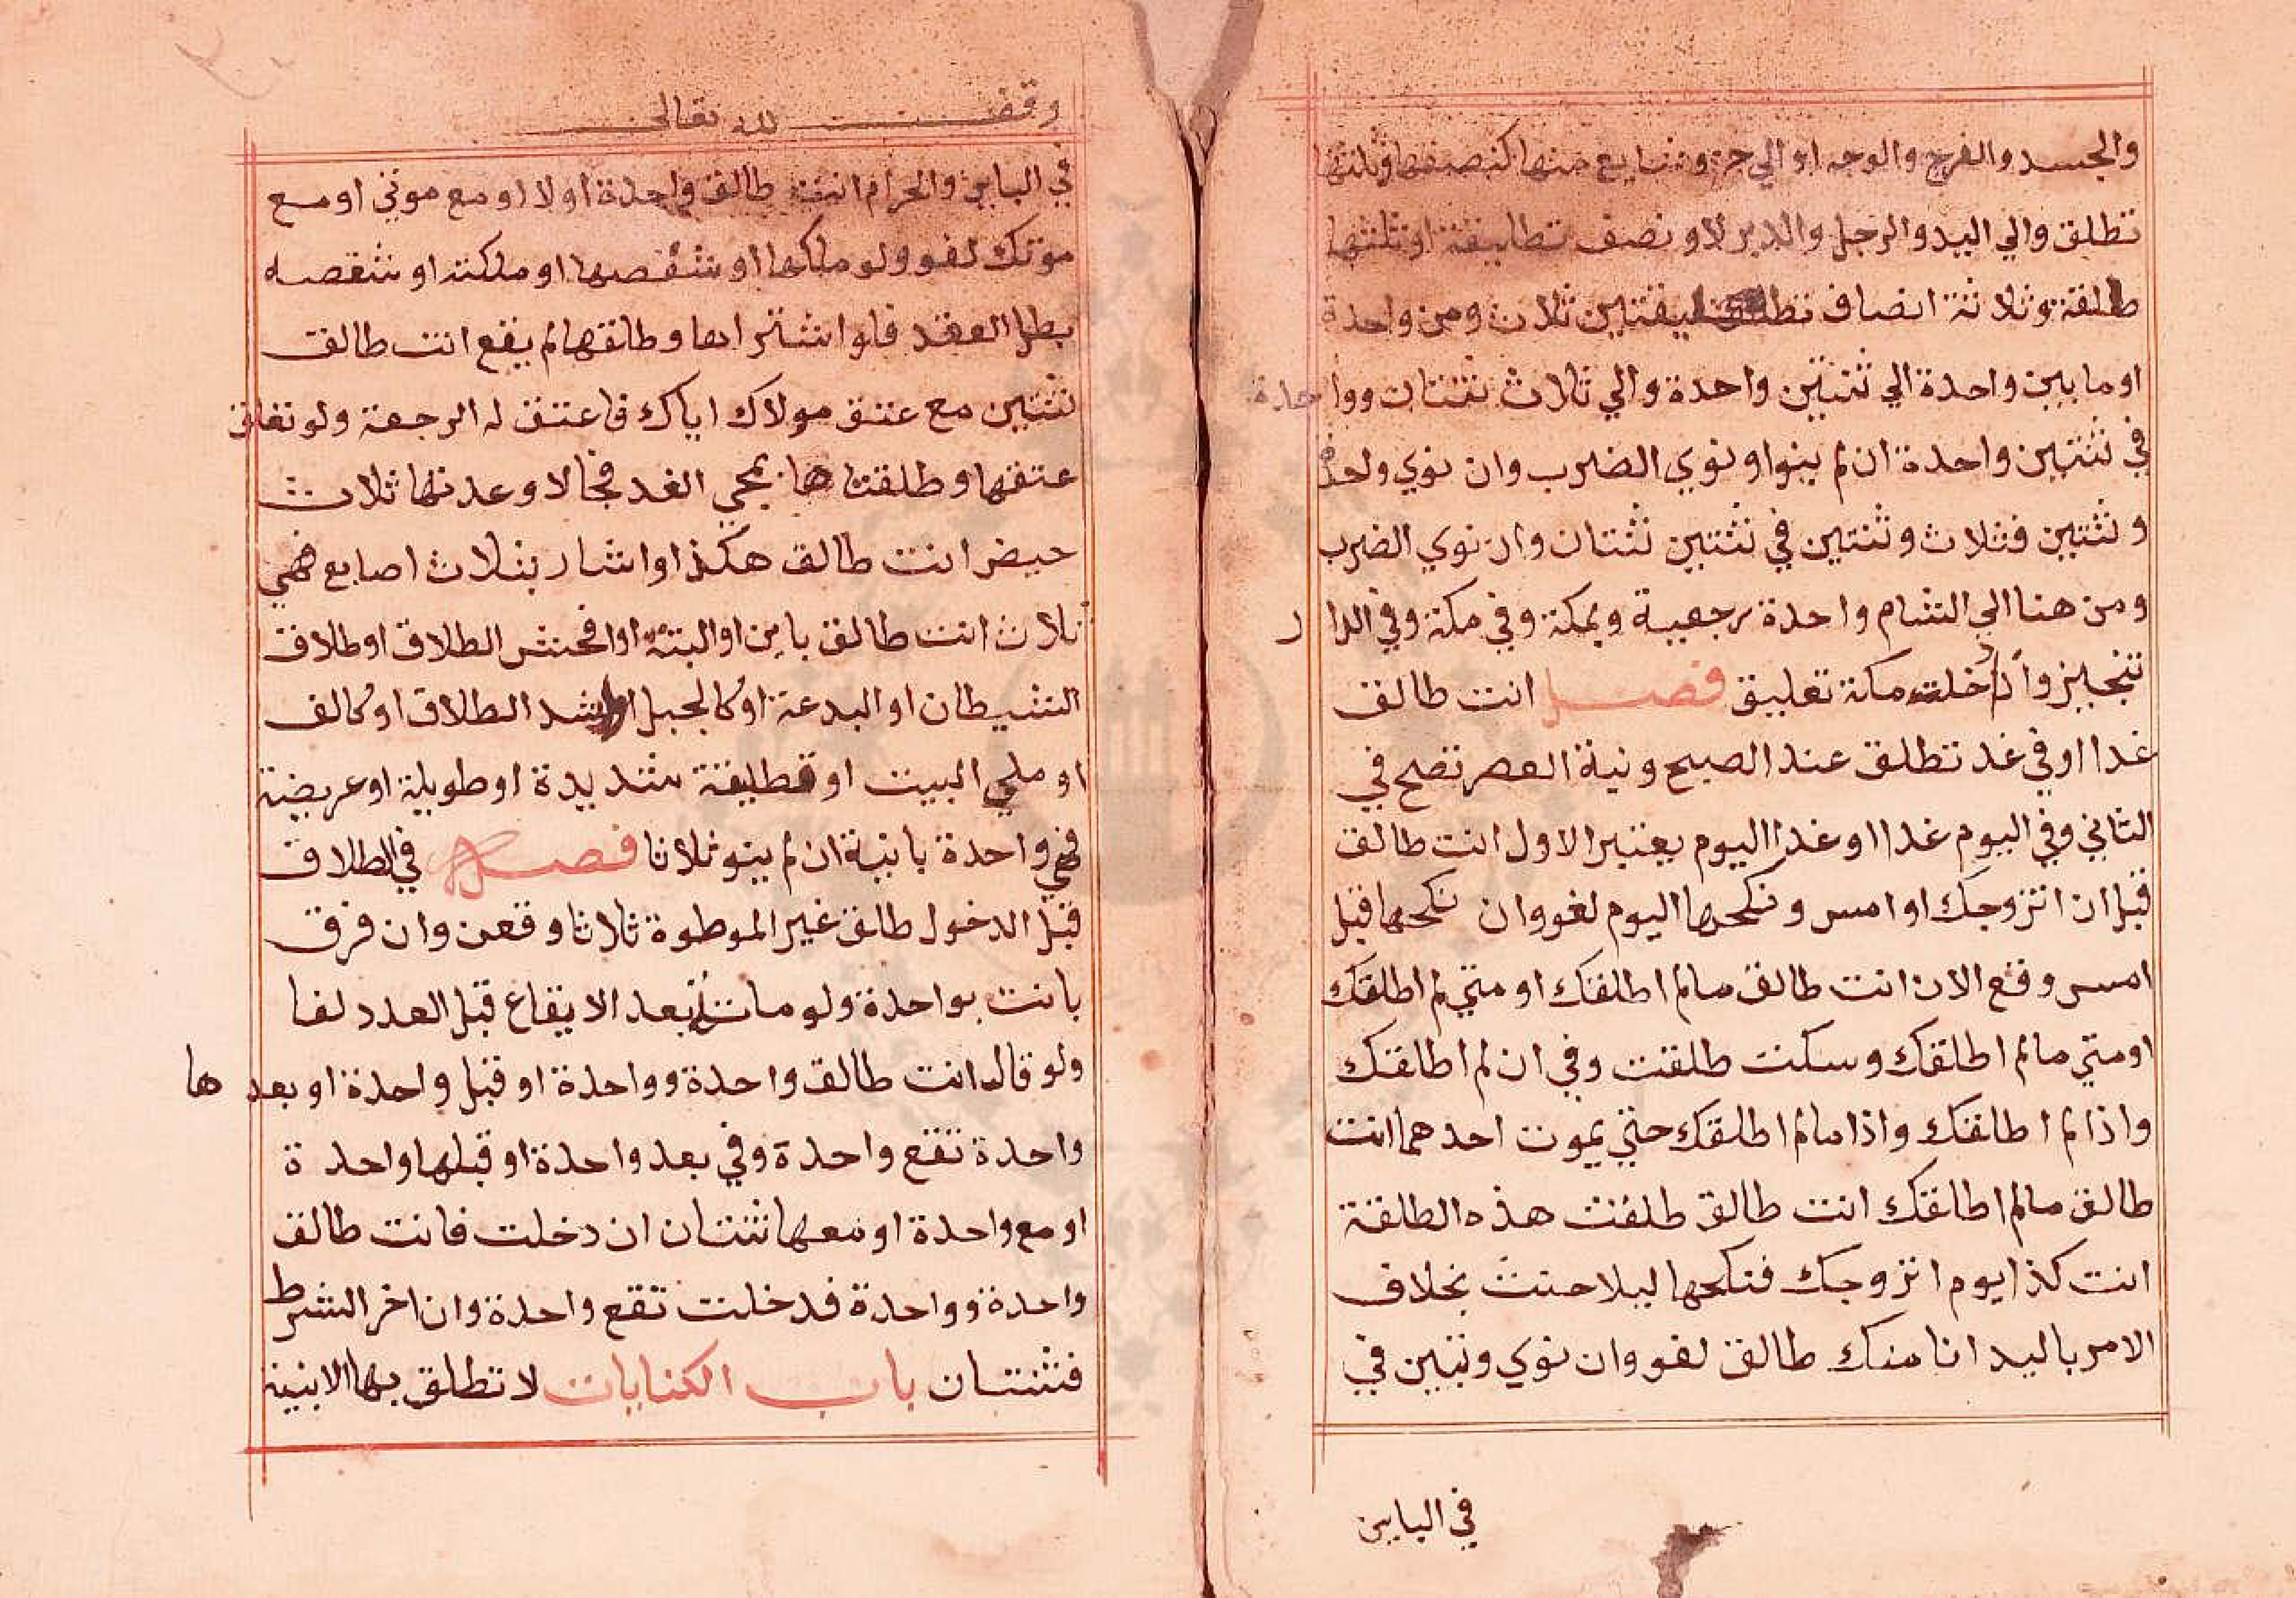 والجسد والفرج والوجه او الي جزو شايع منها كنصفها وثلثها
تطلق والي اليد والرجل والدبر لا ونصف تطليقة او ثلثها
طلقة وثلاثة انصاف تطليقتين ثلاث ومن واحدة
او ما بين واحدة الي ثنتين واحدة والي ثلاث ثنتان وواحدة
في ثنتين واحدة ان لم ينو او نوي الضرب وان نوي واحدة
وثنتين فثلاث وثنتين في ثنتين ثنتان وان نوي الضرب
ومن هنا الي الشام واحدة رجعية وبمكة وفي مكة وفي الدار
تنجيز واذا دخلت مكة تعليق فصل انت طالق
غدا او في غد تطلق عند الصبح ونية العصر تصح في
الثاني وفي اليوم غدا او غدا اليوم يعتبر الاول انت طالق
قبل ان اتزوجك او امس ونكحها اليوم لغو وان نكحها قبل
امس وقع الان انت طالق مالم اطلقك او متي لم اطلقك
او متي مالم اطلقك وسكت طلقت وفي ان لم اطلقك
واذا لم اطلقك واذا مالم اطلقك حتي يموت احدهما انت
طالق مالم اطلقك انت طالق طلقت هذه الطلقة
انت كذا يوم اتزوجك فنكحها ليلا حنث بخلاف
الامر باليد انا منك طالق لغو وان نوي وتبين في
في الباين
وقف لله تعالى
في الباين والحرام انت طالق واحدة اولا او مع موتي او مع
موتك لغو ولو ملكها او شقصها او ملكته او شقصه
بطل العقد فلو اشتراها وطلقها لم يقع انت طالق
ثنتين مع عتق مولاك اياك فاعتق له الرجعة ولو تعلق
عتقها وطلقتاها بمجي الغد فجا لا وعدتها ثلاث
حيض انت طالق هكذا واشار بثلاث اصابع فهي
ثلاث انت طالق باين او البتة او افحش الطلاق او طلاق
الشيطان او البدعة او كالجبل او اشد الطلاق او كالف
او ملي البيت او تطليقة شديدة او طويلة او عريضة
فهي واحدة باينة ان لم ينو ثلاثا فصل في الطلاق
قبل الدخول طلق غير الموطوة ثلاثا وقعن وان فرق
بانت بواحدة ولو ماتت بعد الايقاع قبل العدد لغا
ولو قال انت طالق واحدة وواحدة او قبل واحدة او بعدها
واحدة تقع واحدة وفي بعد واحدة او قبلها واحدة
او مع واحدة او معها ثنتان ان دخلت فانت طالق
واحدة وواحدة فدخلت تقع واحدة وان اخر الشرط
فثنتان باب الكنايات لا تطلق بها الا بنية